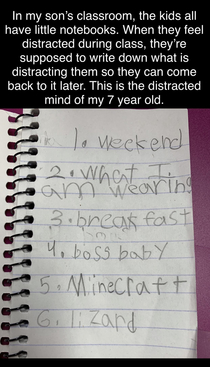 In my son's classroom, the kids all
have little notebooks. When they feel
distracted during class, they're
supposed to write down what is
distracting them so they can come
back to it later. This is the distracted
mind of my 7 year old.
1. weekend
2. what I
am wearing
3. break fast
4. boss baby
5. Minecraft
6. lizard